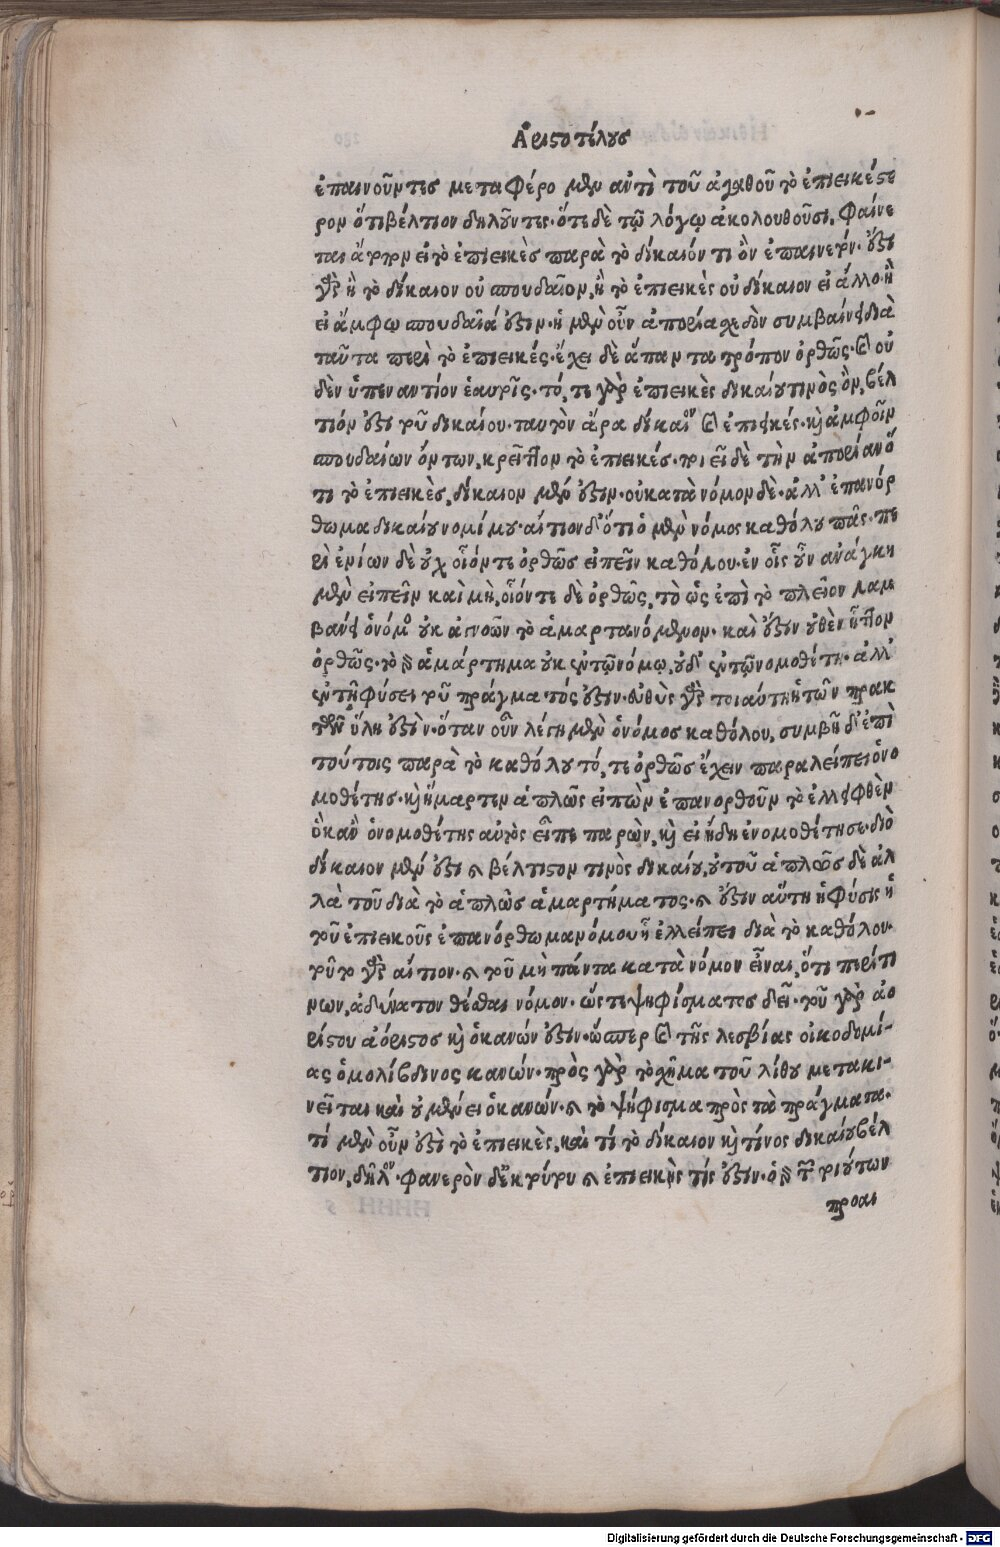 Ἀριστοτέλους
ἐπαινοῦντες μεταφέρομεν ἀντὶ τοῦ ἀγαθοῦ τὸ ἐπιεικέστε
ρον ὅτι βέλτιον δηλοῦντες· ὁτὲ δὲ τῷ λόγῳ ἀκολουθοῦσι, φαίνε
ται ἄτοπον εἰ τὸ ἐπιεικὲς παρὰ τὸ δίκαιόν τι ὂν ἐπαινετόν· ἔστι
γὰρ ἢ τὸ δίκαιον οὐ σπουδαῖον, ἢ τὸ ἐπιεικὲς οὐ δίκαιον εἰ ἄλλο· ἢ
εἰ ἄμφω σπουδαῖά ἐστιν· ἡ μὲν οὖν ἀπορία σχεδὸν συμβαίνει διὰ
ταῦτα περὶ τὸ ἐπιεικές· ἔχει δὲ ἅπαν τα τρόπον ὀρθῶς· καὶ οὐ
δὲν ὑπεναντίον ἑαυτοῖς· τό, τε γὰρ ἐπιεικὲς δικαίου τινὸς ὂν, βέλ
τιόν ἐστι τοῦ δικαίου· ταυτὸν ἄρα δίκαιον καὶ ἐπιεικές· κ᾽ ἀμφοῖν
σπουδαίων ὄντων, κρεῖττον τὸ ἐπιεικές· ποιεῖ δὲ τὴν ἀπορίαν ὅ
τι τὸ ἐπιεικὲς, δίκαιον μέν ἐστιν· οὐ κατὰ νόμον δὲ· ἀλλ᾽ ἐπανόρ
θωμα δικαίου νομίμου· αἴτιον δ᾽ ὅτι ὁ μὲν νόμος καθόλου πᾶς· πε
ρὶ ἐνίων δὲ οὐχ οἷόν τε ὀρθῶς εἰπεῖν καθόλου· ἐν οἷς οὖν ἀνάγκη
μὲν εἰπεῖν καὶ μὴ, οἷόν τε δὲ ὀρθῶς, τὸ ὡς ἐπὶ τὸ πλεῖον λαμ
βάνει ὁ νόμος οὐκ ἀγνοῶν τὸ ἁμαρτανόμενον· καὶ ἔστιν οὐθὲν ἧττον
ὀρθῶς· τὸ γὰρ ἁμάρτημα οὐκ ἐν τῷ νόμῳ, οὐδ᾽ ἐν τῷ νομοθέτῃ· ἀλλ᾽
ἐν τῇ φύσει τοῦ πράγματός ἐστιν· εὐθὺς γὰρ τοιαύτη ἡ τῶν πρακ
τῶν ὕλη ἐστὶν· ὅταν οὖν λέγῃ μὲν ὁ νόμος καθόλου, συμβῇ δ᾽ ἐπὶ
τούτοις παρὰ τὸ καθόλου τό, τε ὀρθῶς ἔχειν παραλείπει ὁ νο
μοθέτης· κ᾽ ἥμαρτεν ἁπλῶς εἰπὼν ἐπανορθοῦν τὸ ἐλλειφθὲν
ὃ κἂν ὁ νομοθέτης αὐτὸς εἶπε παρών, κ᾽ εἰ ᾔδη ἐνομοθέτησε· διὸ
δίκαιον μέν ἐστι καὶ βέλτιστον τινὸς δικαίου, οὐ τοῦ ἁπλῶς δὲ ἀλ
λὰ τοῦ διὰ τὸ ἁπλῶς ἁμαρτήματος· καὶ ἔστιν αὕτη ἡ φύσις ἡ
τοῦ ἐπιεικοῦς ἐπανόρθωμα νόμου ᾗ ἐλλείπει διὰ τὸ καθόλου·
τοῦτο γὰρ αἴτιον· καὶ τοῦ μὴ πάντα κατὰ νόμον εἶναι, ὅτι περὶ τι
νων, ἀδύνατον θέσθαι νόμον· ὥστε ψηφίσματος δεῖ· τοῦ γὰρ ἀο
ρίστου ἀόριστος κ᾽ ὁ κανών ἐστιν· ὥσπερ καὶ τῆς λεσβίας οἰκοδομί-
ας ὁ μολίβδινος κανών· πρὸς γὰρ τὸ σχῆμα τοῦ λίθου μετακι-
νεῖται καὶ οὐ μένει ὁ κανών· καὶ τὸ ψήφισμα πρὸς τὰ πράγματα·
τί μὲν οὖν ἐστὶ τὸ ἐπιεικὲς, καὶ τί τὸ δίκαιον κ᾽ τίνος δικαίου βέλ
τιον, δῆλον· φανερὸν δ᾽ ἐκ τούτου καὶ ἐπιεικὴς τίς ἐστιν· ὁ γὰρ τῶν τοιούτων
προαι
Digitalisierung gefördert durch die Deutsche Forschungsgemeinschaft - DFG